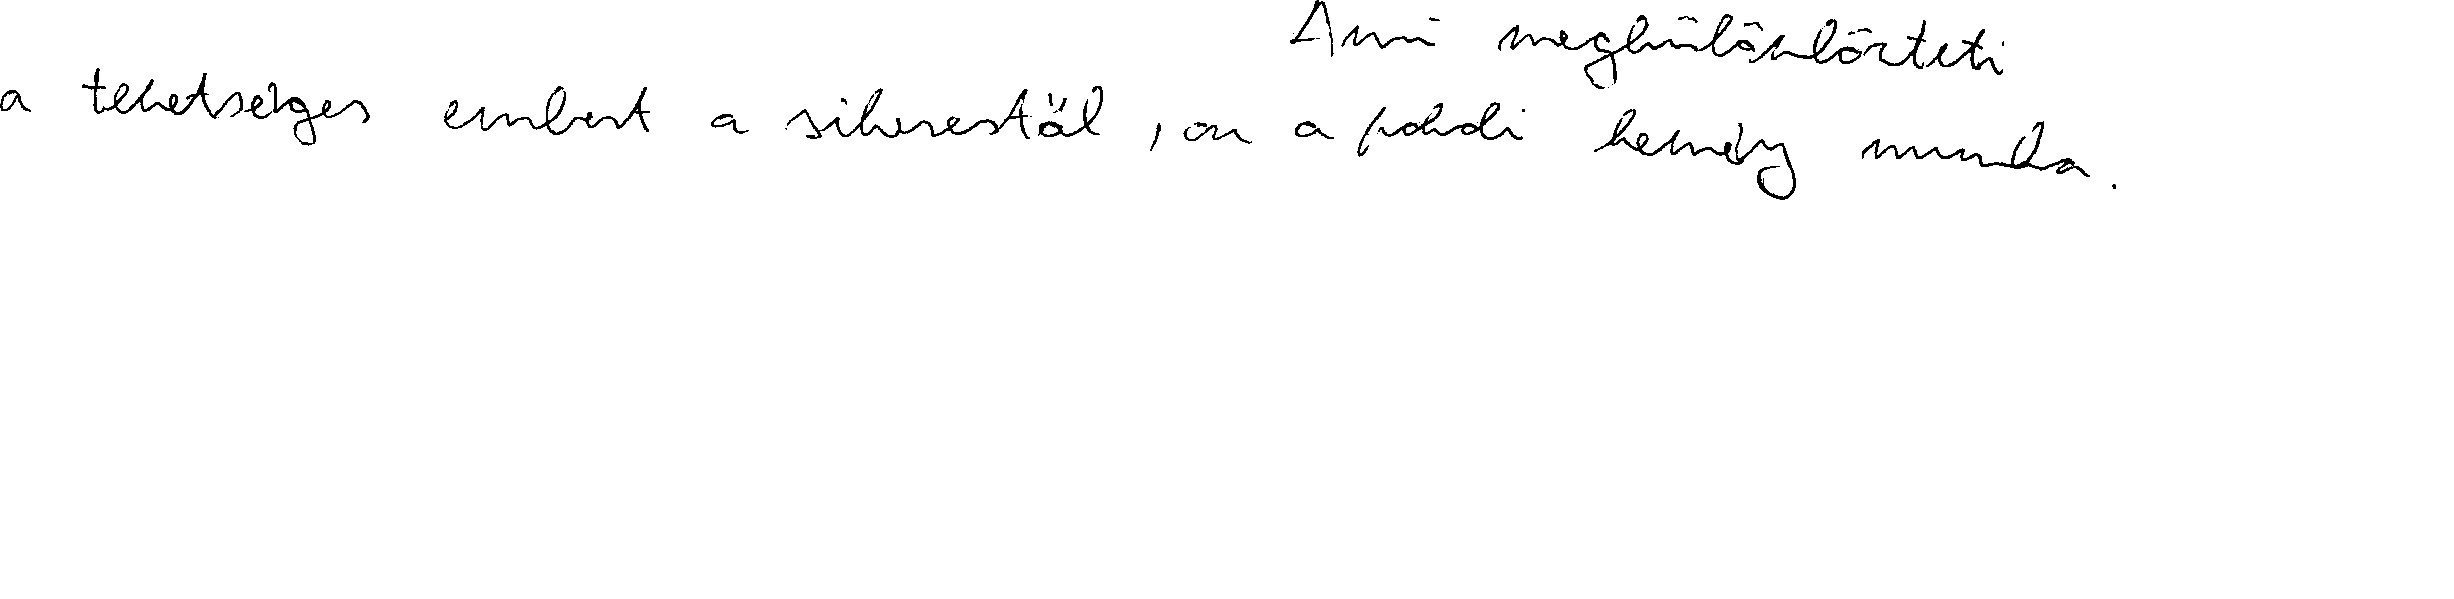 Ami megkülönbözteti
a tehetséges embert a sikerestől, az a sok kemény munka.